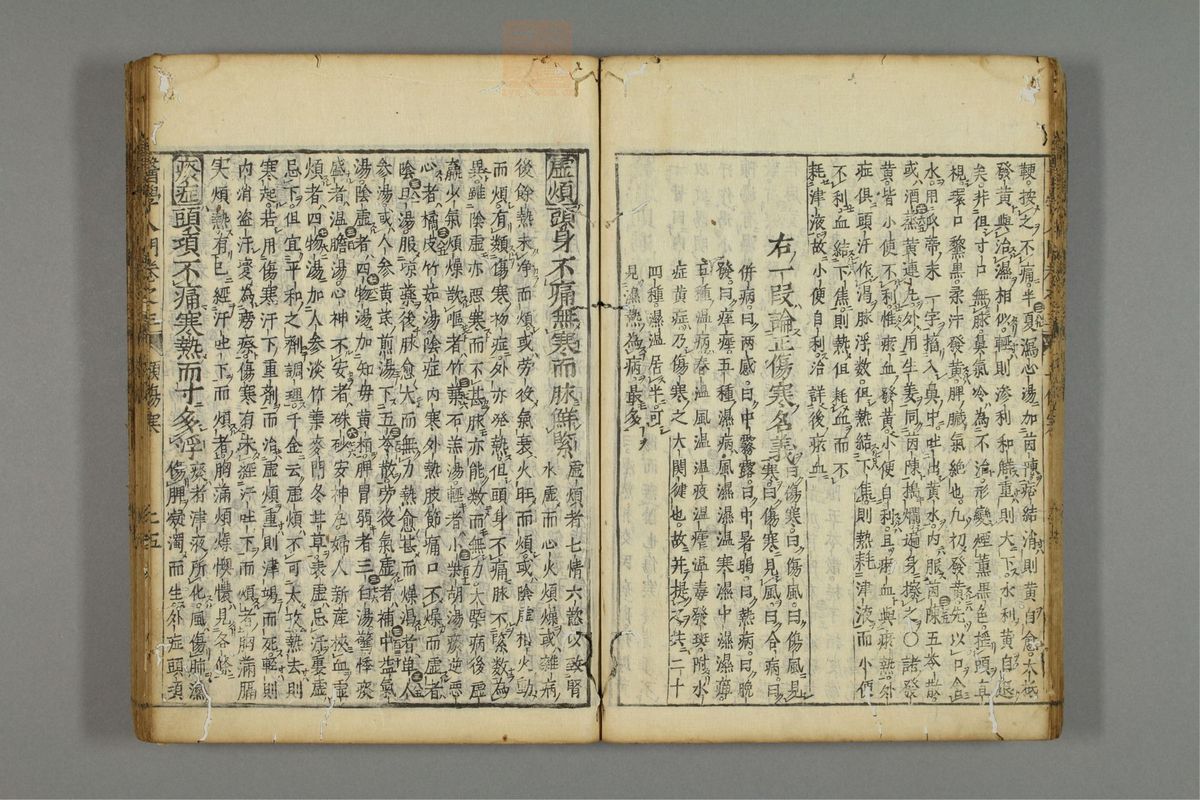 鞕按之不痛半夏瀉心湯加茵陳痞結消則黃自愈大抵
發黃與治濕相似輕則滲利和解重則大下水利黃自退
矣非但寸口無脉鼻氣冷為不治形變煙薰黑色搖頭直
視環口黎黑柔汗發黃脾臟氣絕也凡初發黃先以口含
水用瓜帝末一字搐入鼻中吐出黃水內服茵陳五苓散
或酒蒸黃連丸外用生姜同茵陳擣爛遍身擦之〇諸發
黃皆小便不利惟瘀血發黃小便自利且瘀血與瘀熱外
症俱頭汗作渴脉浮數但熱結下焦則熱耗津液而小便
不利血結下焦則熱但耗血而不
耗津液故小便自利治詳後瘀血
右一叚論正傷寒名義
曰傷寒曰傷風曰傷風見
寒曰傷寒見風曰合病曰
併病曰两感曰中霧露曰中暑暍曰熱病曰晚
發曰痓痓五種濕病風濕濕温寒中濕濕痺
五種温病春温風温温疫温瘧温毒發斑附水
症黃症乃傷寒之大関鍵也故并提之共二十
四種濕温居半可
見濕熱為病最多
虛煩頭身不痛無寒而脉鮮緊
虛煩者七情六慾以致腎
水虛而心火煩燥或雜病
後餘熱未净而煩或勞役氣衰火旺而煩或陰虛相火動
而煩有類傷寒初症外亦發熱但頭身不痛脉不緊數為
異雖陰虛亦惡寒而不甚脉亦能數而無力大槩病後虛
羸少氣煩燥欲嘔者竹葉石羔湯輕者小柴胡湯痰逆惡
心者橘皮竹茹湯陰症內寒外熱肢節痛口不燥而虛者
陰旦湯服凉藥後脉愈大而無力熱愈甚而燥渴者单人
參湯或人參黃芪煎湯下五苓散勞役氣虛者補中益氣
湯陰虛者四物湯加知母黃柏脾胃弱者三白湯驚悸痰
盛者温膽湯心神不安者硃砂安神丸婦人新産挾血虛
煩者四物湯加人參淡竹葉麥門冬甘草衰虛忌汗裏虛
忌下但宜平和之劑調理千金云虛煩不可大攻熱去則
寒起若用傷寒汗下重劑而治虛煩重則津竭而死輕則
內消盗汗變為癆瘵傷寒有未經汗吐下而煩者胸滿膈
實煩熱有已經汗吐下而煩者胸滿煩燒懊憹見各條
痰症頭項不痛寒熱而寸多浮
痰者津液所化風傷肺濕
傷脾凝濁而生外症頭項
醫學入門卷之三
類傷寒
七五